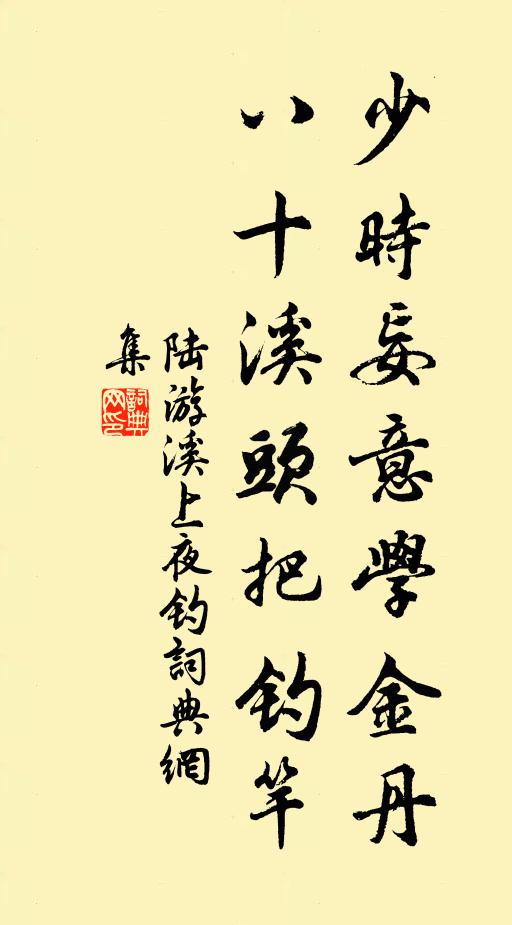 少時妄意學金丹
八十溪頭把釣竿
陸游溪上夜釣詞典網
集
詞典網印